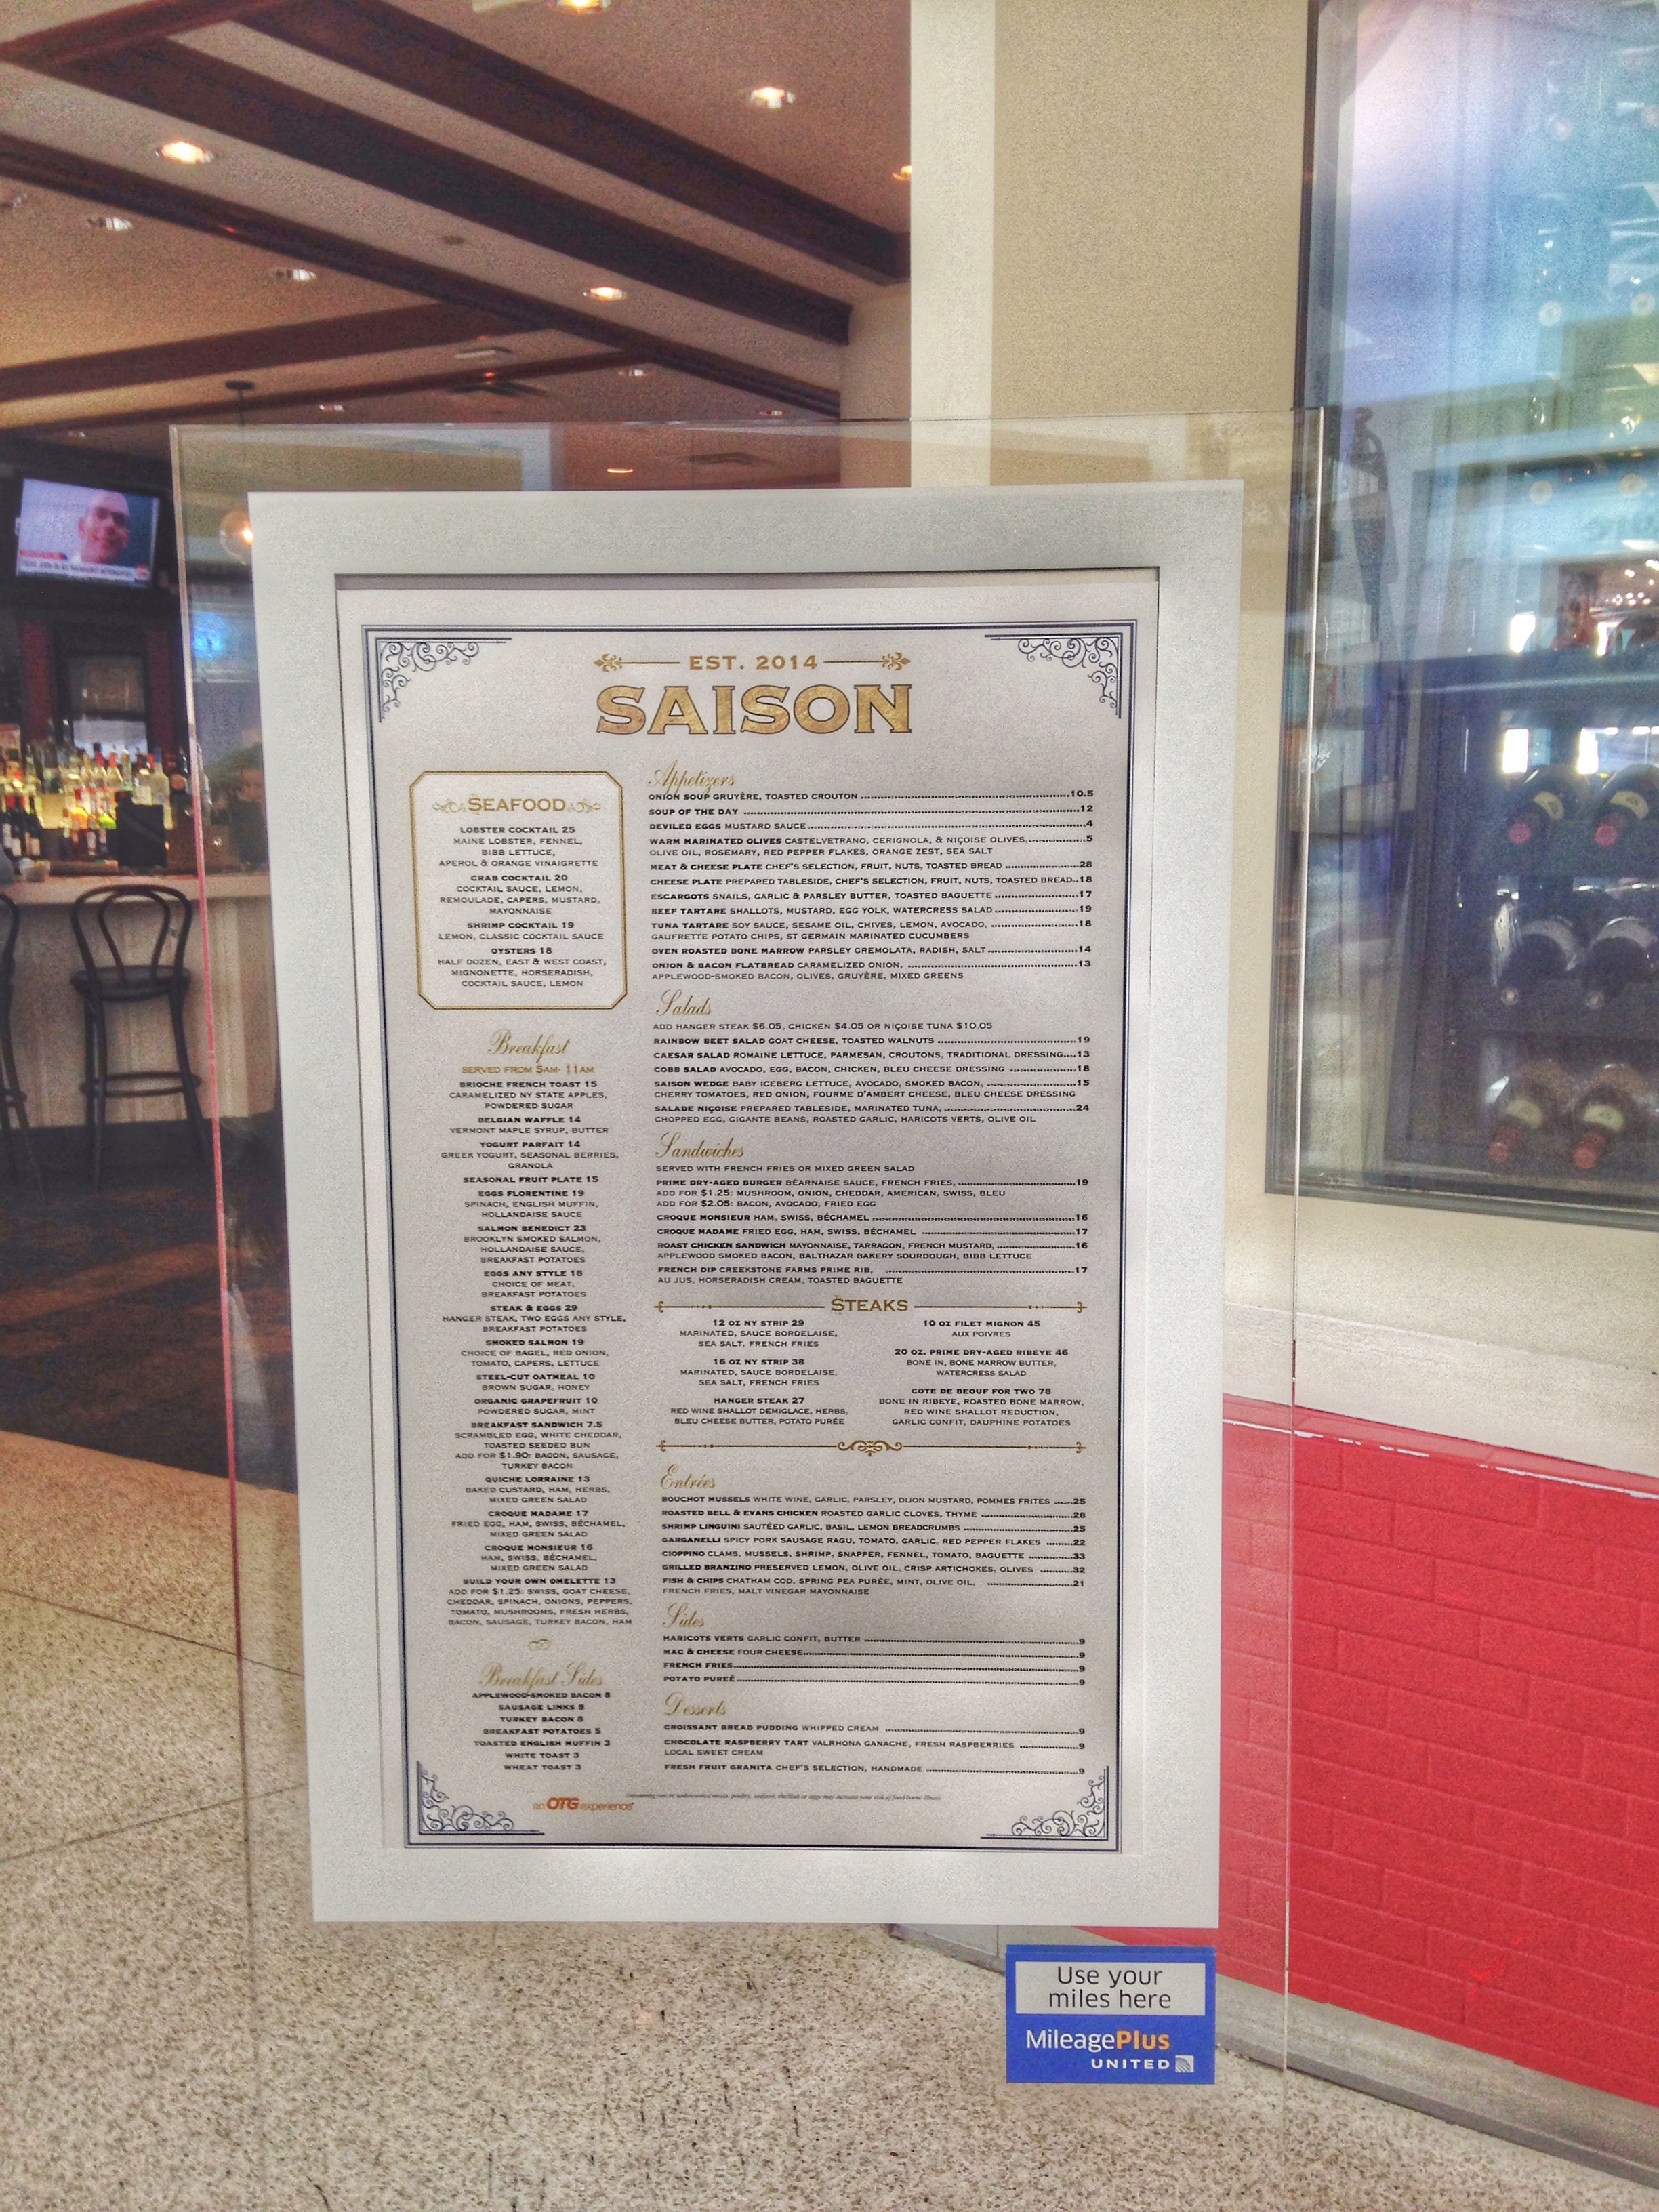 EST. 2014
SAISON
SEAFOOD
LOBSTER COCKTAIL 25
MAINE LOBSTER, FENNEL,
BIBB LETTUCE,
APEROL & ORANGE VINAIGRETTE
CRAB COCKTAIL 20
COCKTAIL SAUCE, LEMON,
REMOULADE, CAPERS, MUSTARD,
MAYONNAISE
SHRIMP COCKTAIL 19
LEMON, CLASSIC COCKTAIL SAUCE
OYSTERS 18
HALF DOZEN, EAST & WEST COAST,
MIGNONETTE, HORSERADISH,
COCKTAIL SAUCE, LEMON
Breakfast
SERVED FROM 5AM- 11AM
BRIOCHE FRENCH TOAST 15
CARAMELIZED NY STATE APPLES,
POWDERED SUGAR
BELGIAN WAFFLE 14
VERMONT MAPLE SYRUP, BUTTER
YOGURT PARFAIT 14
GREEK YOGURT, SEASONAL BERRIES,
GRANOLA
SEASONAL FRUIT PLATE 15
EGGS FLORENTINE 19
SPINACH, ENGLISH MUFFIN,
HOLLANDAISE SAUCE
SALMON BENEDICT 23
BROOKLYN SMOKED SALMON,
HOLLANDAISE SAUCE,
BREAKFAST POTATOES
EGGS ANY STYLE 18
CHOICE OF MEAT,
BREAKFAST POTATOES
STEAK & EGGS 29
HANGER STEAK, TWO EGGS ANY STYLE,
BREAKFAST POTATOES
SMOKED SALMON 19
CHOICE OF BAGEL, RED ONION,
TOMATO, CAPERS, LETTUCE
STEEL-CUT OATMEAL 10
BROWN SUGAR, HONEY
ORGANIC GRAPEFRUIT 10
POWDERED SUGAR, MINT
BREAKFAST SANDWICH 7.5
SCRAMBLED EGG, WHITE CHEDDAR,
TOASTED SEEDED BUN
ADD FOR $1.90: BACON, SAUSAGE,
TURKEY BACON
QUICHE LORRAINE 13
BAKED CUSTARD, HAM, HERBS,
MIXED GREEN SALAD
CROQUE MADAME 17
FRIED EGG, HAM, SWISS, BÉCHAMEL,
MIXED GREEN SALAD
CROQUE MONSIEUR 16
HAM, SWISS, BÉCHAMEL,
MIXED GREEN SALAD
BUILD YOUR OWN OMELETTE 13
ADD FOR $1.25: SWISS, GOAT CHEESE,
CHEDDAR, SPINACH, ONIONS, PEPPERS,
TOMATO, MUSHROOMS, FRESH HERBS,
BACON, SAUSAGE, TURKEY BACON, HAM
Breakfast Sides
APPLEWOOD-SMOKED BACON 8
SAUSAGE LINKS 8
TURKEY BACON 8
BREAKFAST POTATOES 5
TOASTED ENGLISH MUFFIN 3
WHITE TOAST 3
WHEAT TOAST 3
Appetizers
ONION SOUP GRUYÈRE, TOASTED CROUTON 10.5
SOUP OF THE DAY 12
DEVILED EGGS MUSTARD SAUCE 4
WARM MARINATED OLIVES CASTELVETRANO, CERIGNOLA, & NIÇOISE OLIVES, 5
OLIVE OIL, ROSEMARY, RED PEPPER FLAKES, ORANGE ZEST, SEA SALT
MEAT & CHEESE PLATE CHEF'S SELECTION, FRUIT, NUTS, TOASTED BREAD 28
CHEESE PLATE PREPARED TABLESIDE, CHEF'S SELECTION, FRUIT, NUTS, TOASTED BREAD 18
ESCARGOTS SNAILS, GARLIC & PARSLEY BUTTER, TOASTED BAGUETTE 17
BEEF TARTARE SHALLOTS, MUSTARD, EGG YOLK, WATERCRESS SALAD 19
TUNA TARTARE SOY SAUCE, SESAME OIL, CHIVES, LEMON, AVOCADO, 18
GAUFRETTE POTATO CHIPS, ST GERMAIN MARINATED CUCUMBERS
OVEN ROASTED BONE MARROW PARSLEY GREMOLATA, RADISH, SALT 14
ONION & BACON FLATBREAD CARAMELIZED ONION, 13
APPLEWOOD-SMOKED BACON, OLIVES, GRUYÈRE, MIXED GREENS
Salads
ADD HANGER STEAK $6.05, CHICKEN $4.05 OR NIÇOISE TUNA $10.05
RAINBOW BEET SALAD GOAT CHEESE, TOASTED WALNUTS 19
CAESAR SALAD ROMAINE LETTUCE, PARMESAN, CROUTONS, TRADITIONAL DRESSING 13
COBB SALAD AVOCADO, EGG, BACON, CHICKEN, BLEU CHEESE DRESSING 18
SAISON WEDGE BABY ICEBERG LETTUCE, AVOCADO, SMOKED BACON, 15
CHERRY TOMATOES, RED ONION, FOURME D'AMBERT CHEESE, BLEU CHEESE DRESSING
SALADE NIÇOISE PREPARED TABLESIDE, MARINATED TUNA, 24
CHOPPED EGG, GIGANTE BEANS, ROASTED GARLIC, HARICOTS VERTS, OLIVE OIL
Sandwiches
SERVED WITH FRENCH FRIES OR MIXED GREEN SALAD
PRIME DRY-AGED BURGER BÉARNAISE SAUCE, FRENCH FRIES, 19
ADD FOR $1.25: MUSHROOM, ONION, CHEDDAR, AMERICAN, SWISS, BLEU
ADD FOR $2.05: BACON, AVOCADO, FRIED EGG
CROQUE MONSIEUR HAM, SWISS, BÉCHAMEL 16
CROQUE MADAME FRIED EGG, HAM, SWISS, BÉCHAMEL 17
ROAST CHICKEN SANDWICH MAYONNAISE, TARRAGON, FRENCH MUSTARD, 16
APPLEWOOD SMOKED BACON, BALTHAZAR BAKERY SOURDOUGH, BIBB LETTUCE
FRENCH DIP CREEKSTONE FARMS PRIME RIB, 17
AU JUS, HORSERADISH CREAM, TOASTED BAGUETTE
STEAKS
12 OZ NY STRIP 29
MARINATED, SAUCE BORDELAISE,
SEA SALT, FRENCH FRIES
16 OZ NY STRIP 38
MARINATED, SAUCE BORDELAISE,
SEA SALT, FRENCH FRIES
HANGER STEAK 27
RED WINE SHALLOT DEMIGLACE, HERBS,
BLEU CHEESE BUTTER, POTATO PURÉE
10 OZ FILET MIGNON 45
AUX POIVRES
20 OZ. PRIME DRY-AGED RIBEYE 46
BONE IN, BONE MARROW BUTTER,
WATERCRESS SALAD
COTE DE BEOUF FOR TWO 78
BONE IN RIBEYE, ROASTED BONE MARROW,
RED WINE SHALLOT REDUCTION,
GARLIC CONFIT, DAUPHINE POTATOES
Entrées
BOUCHOT MUSSELS WHITE WINE, GARLIC, PARSLEY, DIJON MUSTARD, POMMES FRITES 25
ROASTED BELL & EVANS CHICKEN ROASTED GARLIC CLOVES, THYME 28
SHRIMP LINGUINI SAUTÉED GARLIC, BASIL, LEMON BREADCRUMBS 25
GARGANELLI SPICY PORK SAUSAGE RAGU, TOMATO, GARLIC, RED PEPPER FLAKES 22
CIOPPINO CLAMS, MUSSELS, SHRIMP, SNAPPER, FENNEL, TOMATO, BAGUETTE 33
GRILLED BRANZINO PRESERVED LEMON, OLIVE OIL, CRISP ARTICHOKES, OLIVES 32
FISH & CHIPS CHATHAM COD, SPRING PEA PURÉE, MINT, OLIVE OIL, 21
FRENCH FRIES, MALT VINEGAR MAYONNAISE
Sides
HARICOTS VERTS GARLIC CONFIT, BUTTER 9
MAC & CHEESE FOUR CHEESE 9
FRENCH FRIES 9
POTATO PUREÉ 9
Desserts
CROISSANT BREAD PUDDING WHIPPED CREAM 9
CHOCOLATE RASPBERRY TART VALRHONA GANACHE, FRESH RASPBERRIES 9
LOCAL SWEET CREAM
FRESH FRUIT GRANITA CHEF'S SELECTION, HANDMADE 9
an OTG experience
consuming raw or undercooked meats, poultry, seafood, shellfish or eggs may increase your risk of food borne illness
Use your
miles here
MileagePlus
UNITED